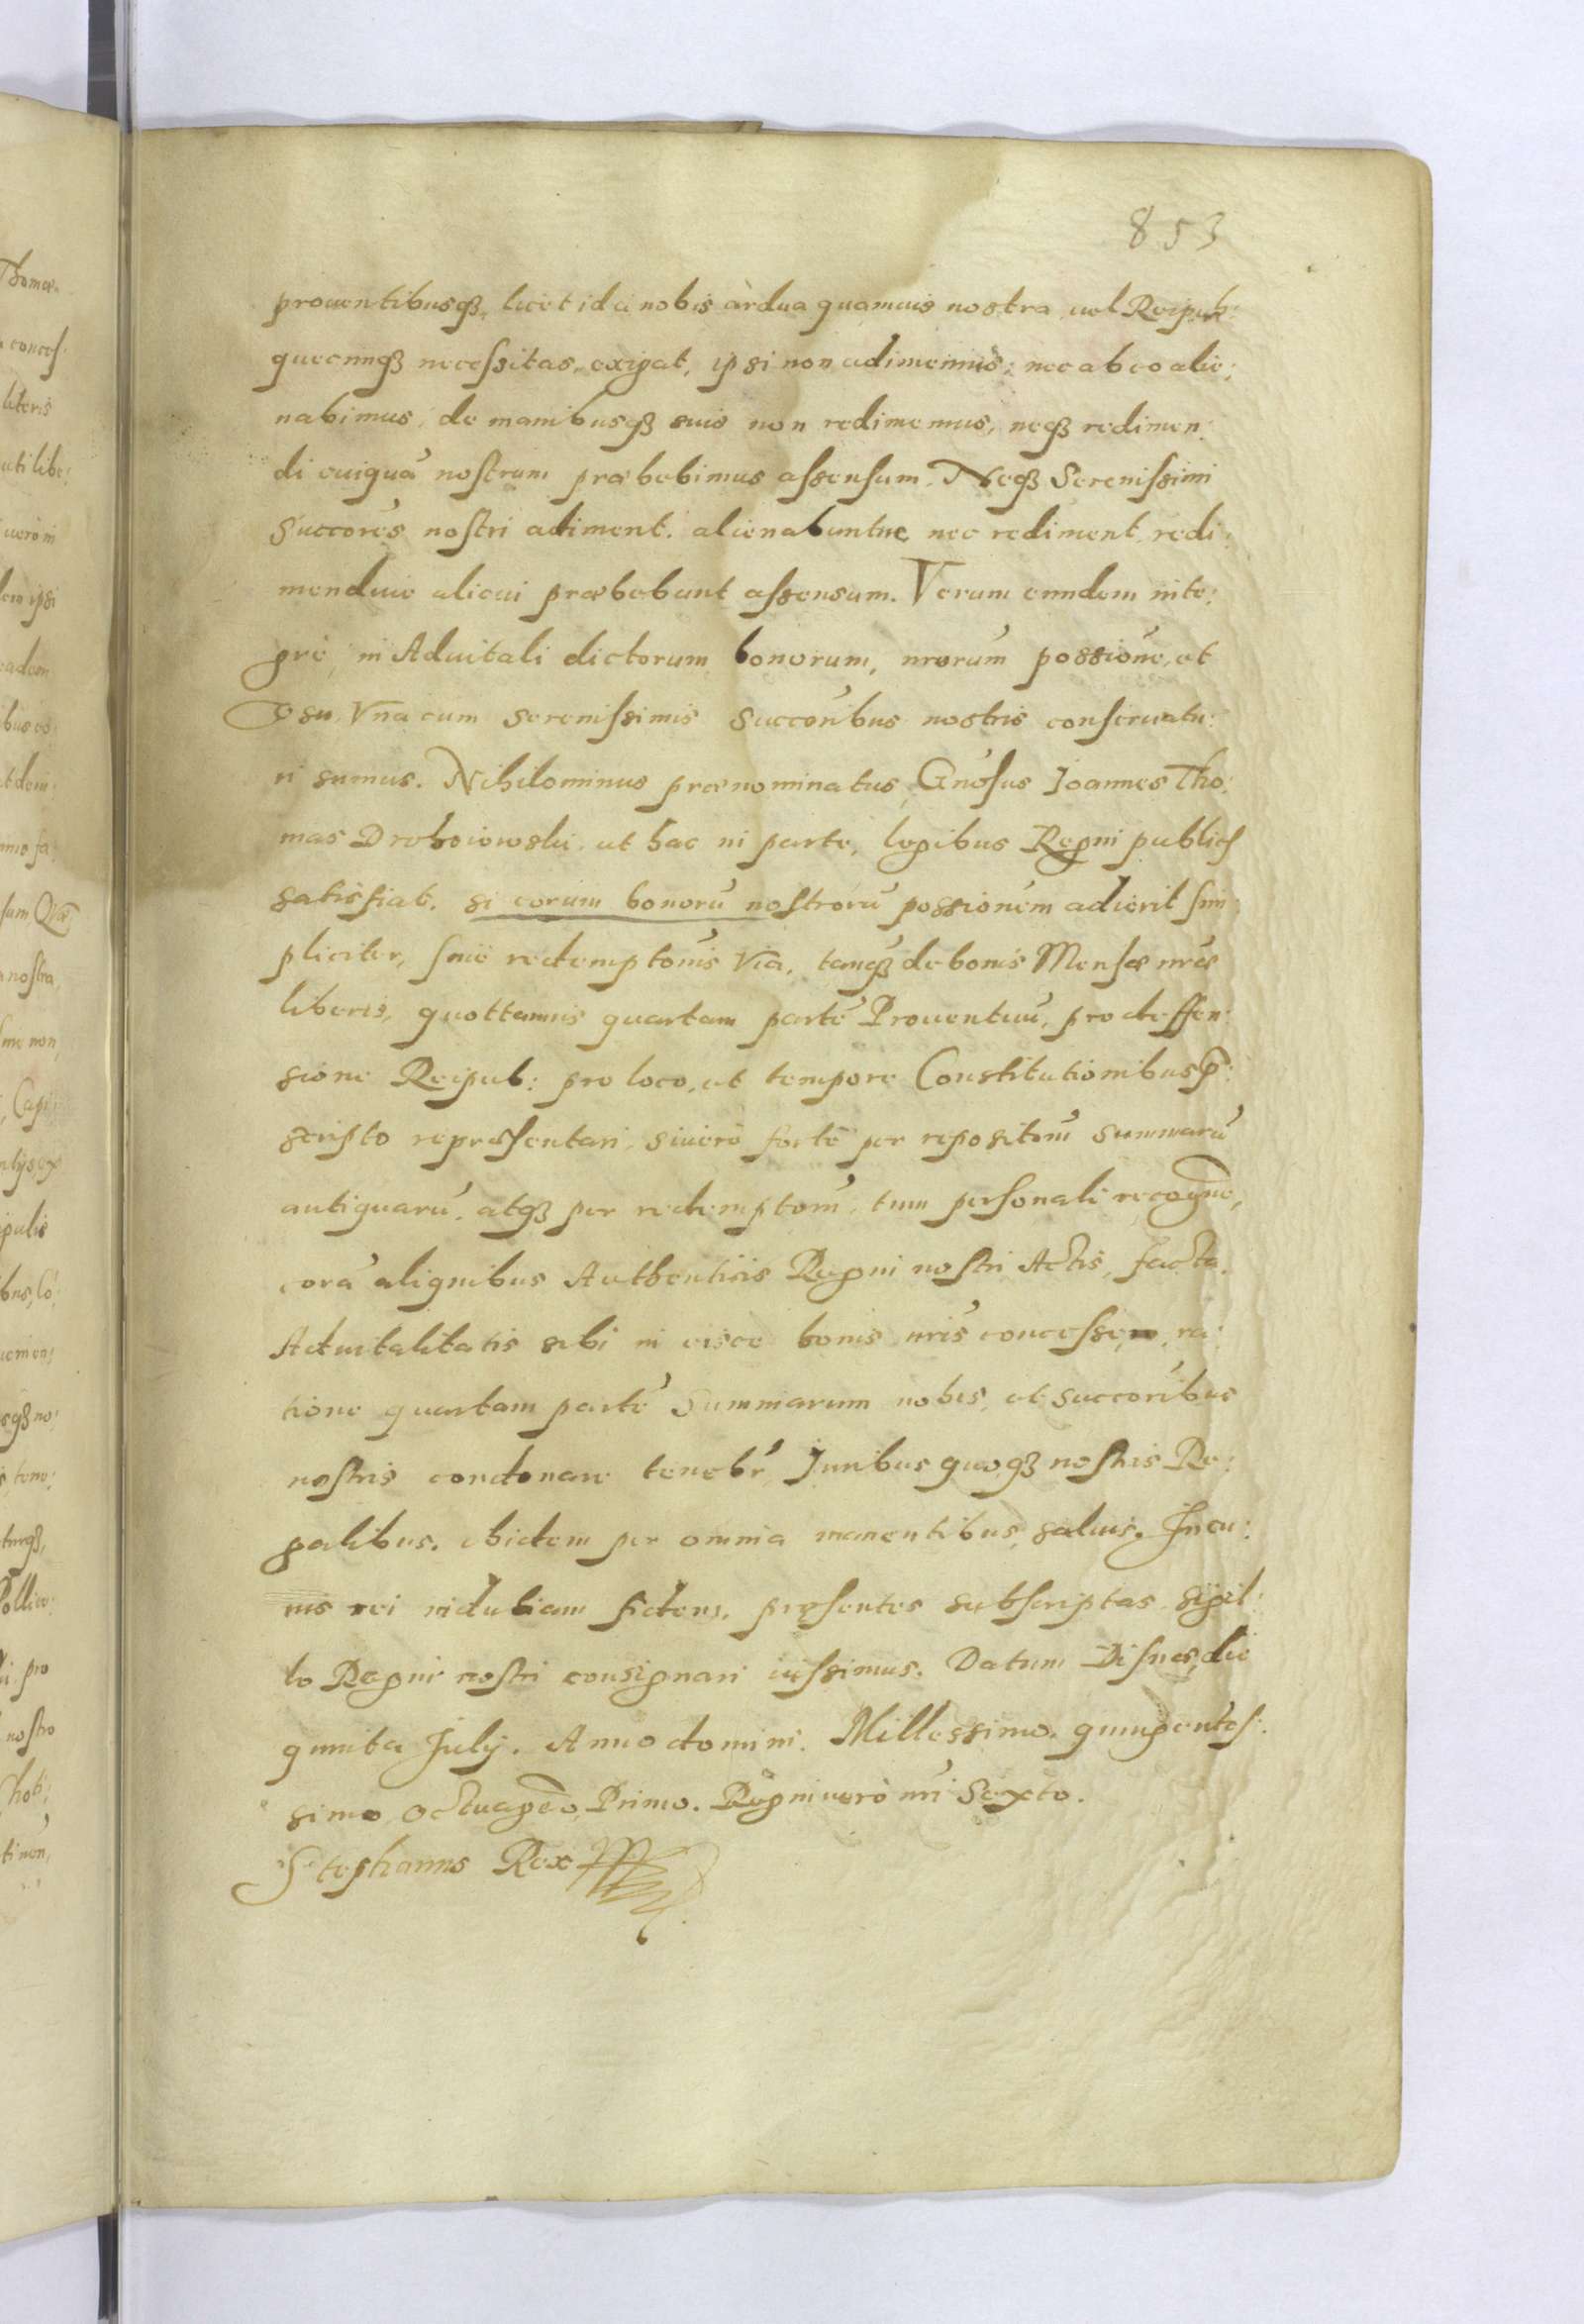 853
prouentibusq₃, licet id à nobis àrdua quamuis nostra, uel Reipub:
quecunq₃ necessitas, exigat, ipsi non adimemus; nec ab eo alie:
nabimus, de manibusq₃ suis non redimemus, neq₃ redimen:
di cuiquā nostrum præbebimus assensum. Neq₃ Serenissimi
Succores nostri adiment. alienabuntue, nec rediment, redi:
menduie alicui præbebunt assensum. Verum eundem inte:
grè, in Aduitali dictorum bonorum, nrorum possione, et
Vsu, Vna cum serenissimis Succoribus nostris conseruatu:
ri sumus. Nihilominus prænominatus, Gnosus Joannes Tho:
mas Drohoiowski, ut hac in parte, legibus Regni publicis
satisfiat. si eorum bonorū nostrorū possionem adierit sim:
pliciter, sine redemptonis Via, tanq₃ de bonis Mensæ nræ
liberis, quottannis quartam partē Prouentuū, pro deffen:
sione Reipub: pro loco, et tempore Constitutionibus p:
scripto repræsentari, si uerò fortè per repositom̄ summarū
antiquarū, atq₃ per redemptom̄, tum personali recogne,
corā aliquibus Authenticis Regni nostri Actis, facta,
Aduitalitatis sibi in eisce bonis nris concesse, ra:
tione quartam partē Summarum nobis, et succoribus
nostris condonare tenebr, Juribus quoq₃ nostris Re:
galibus, ibidem per omnia manentibus, saluis. In cu:
ius rei indubiam fidem, pręsentes subscriptas sigil:
lo Regni nostri consignari iussimus. Datum Disnæ, die
quinta July. Anno domini. Millessimo. quingentes:
simo Octuageo Primo. Regni uerò nri Sexto.
Stephanus Rex